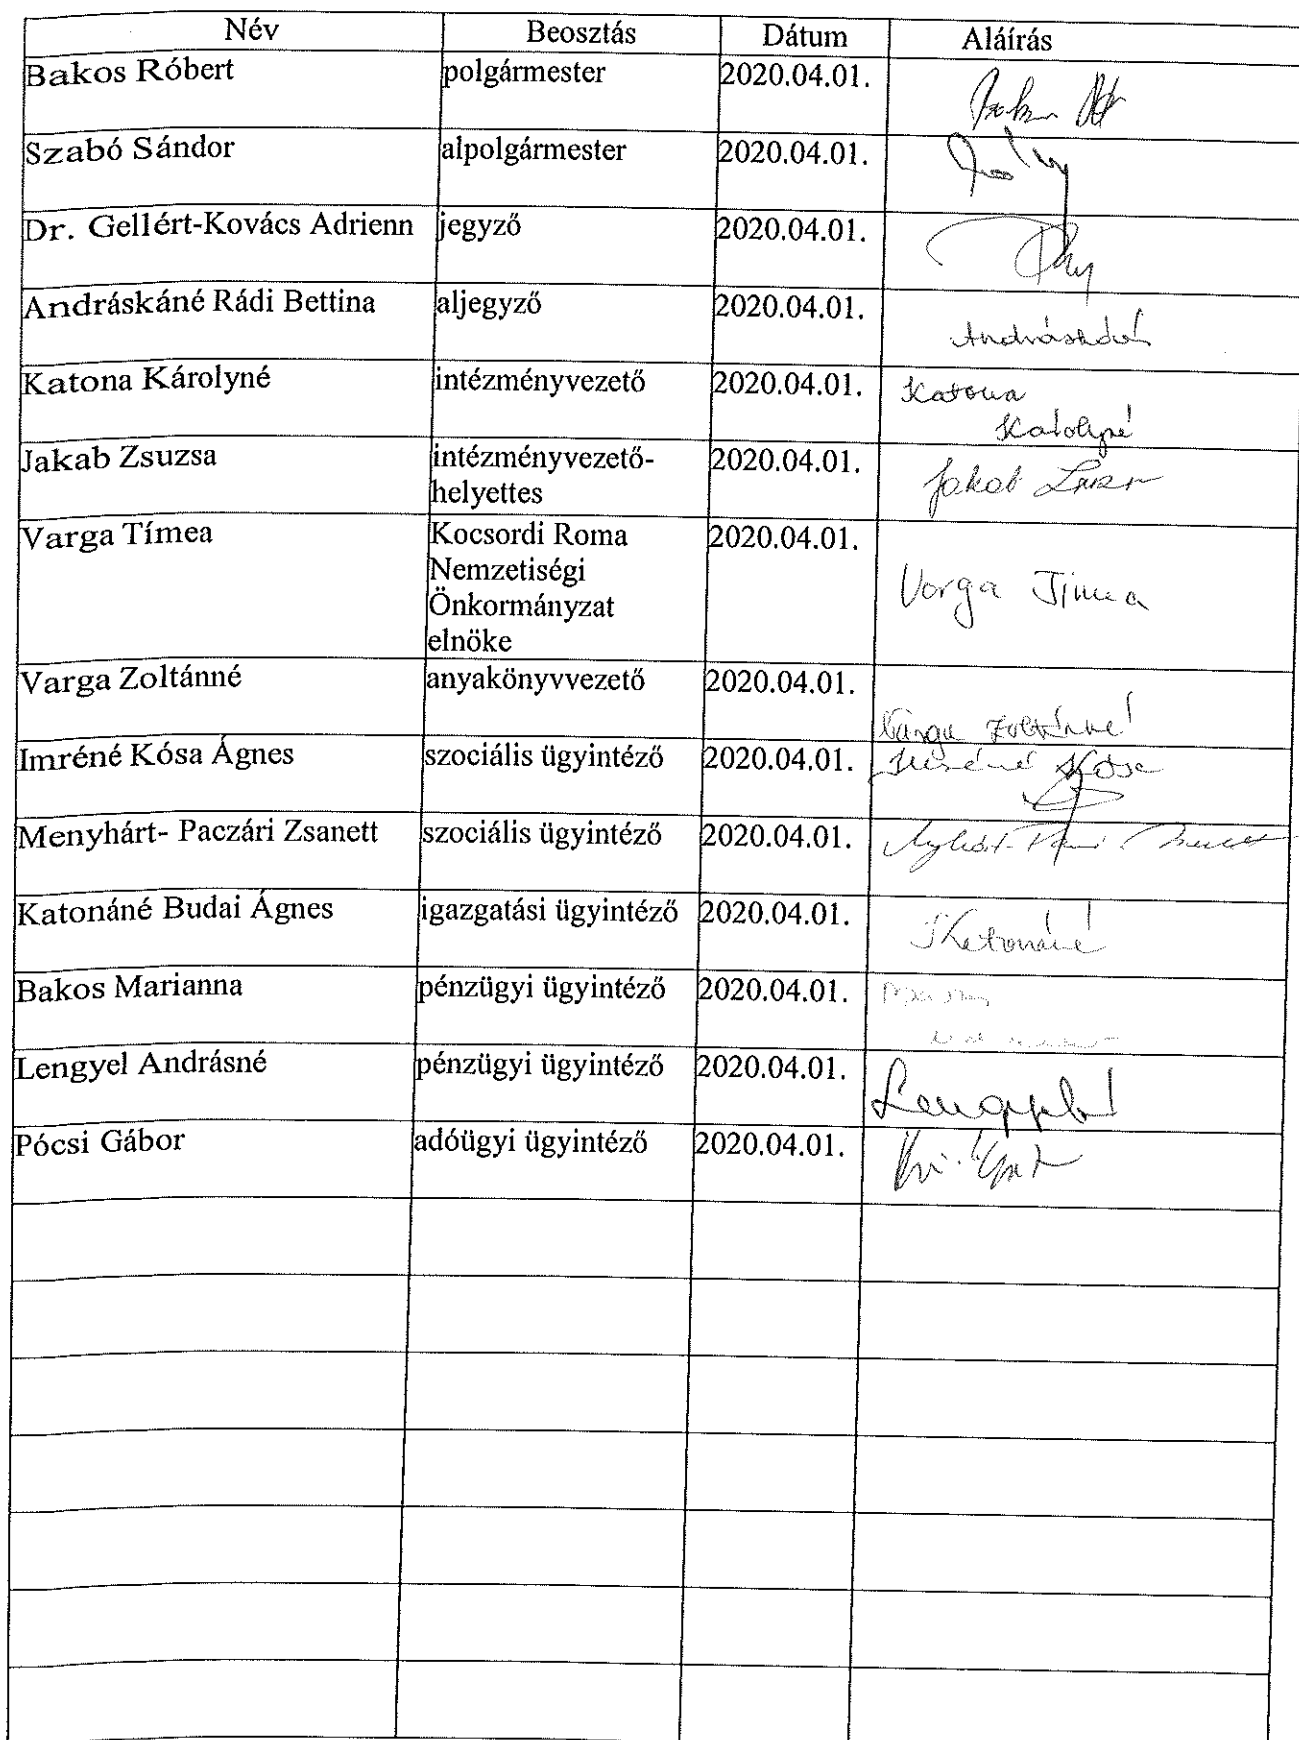 Név Beosztás Dátum Aláírás
Bakos Róbert polgármester 2020.04.01.
Szabó Sándor alpolgármester 2020.04.01.
Dr. Gellért-Kovács Adrienn jegyző 2020.04.01.
Andráskáné Rádi Bettina aljegyző 2020.04.01. Andráskáné
Katona Károlyné intézményvezető 2020.04.01. Katona
Károlyné
Jakab Zsuzsa intézményvezető- 2020.04.01. Jakab
helyettes
Varga Tímea Kocsordi Roma 2020.04.01.
Nemzetiségi
Varga Tímea
Önkormányzat
elnöke
Varga Zoltánné anyakönyvvezető 2020.04.01.
Varga Zoltánné
Imréné Kósa Ágnes szociális ügyintéző 2020.04.01. Imréné Kósa
Menyhárt- Paczári Zsanett szociális ügyintéző 2020.04.01.
Katonáné Budai Ágnes igazgatási ügyintéző 2020.04.01. Katonáné
Bakos Marianna pénzügyi ügyintéző 2020.04.01.
Lengyel Andrásné pénzügyi ügyintéző 2020.04.01. Lengyelné
Pócsi Gábor adóügyi ügyintéző 2020.04.01.